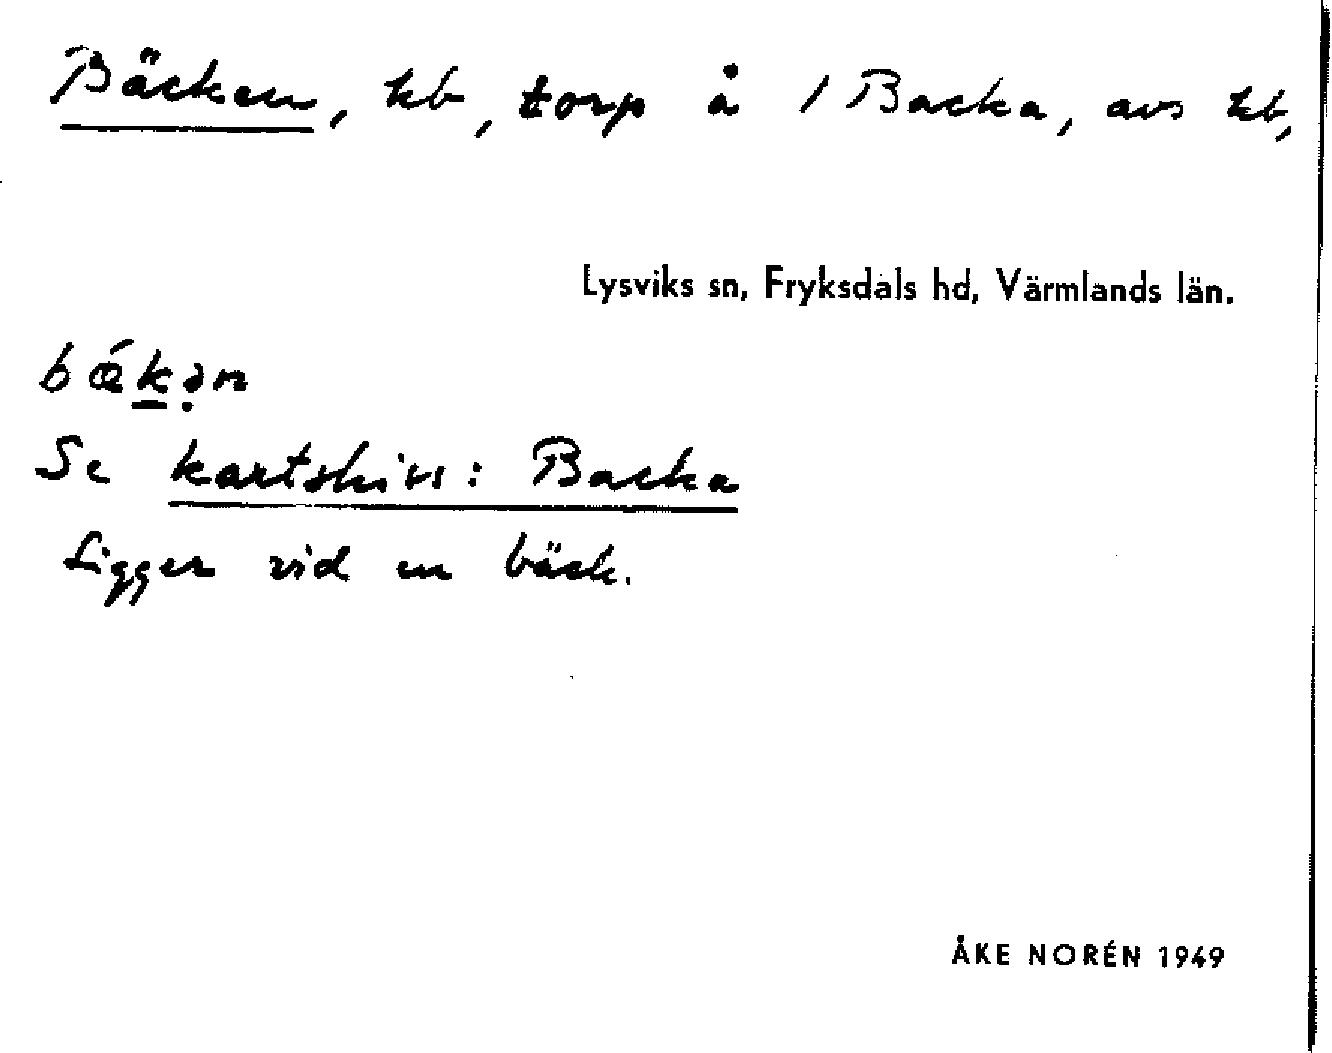 Bäcken, kb, torp å 1 Backa, avs kb,
Lysviks sn, Fryksdals hd, Värmlands län.
bǽkə̣n
Se kartskiss: Backa
Ligger vid en bäck.
ÅKE NORÉN 1949